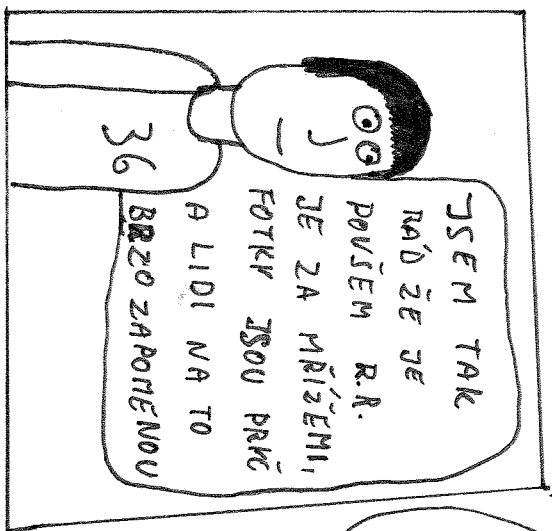 JSEM TAK
RÁD ŽE JE
POVŠEM R.R.
JE ZA MŘÍŽEMI,
FOTKY JSOU PRYČ
A LIDI NA TO
BRZO ZAPOMENOU
36